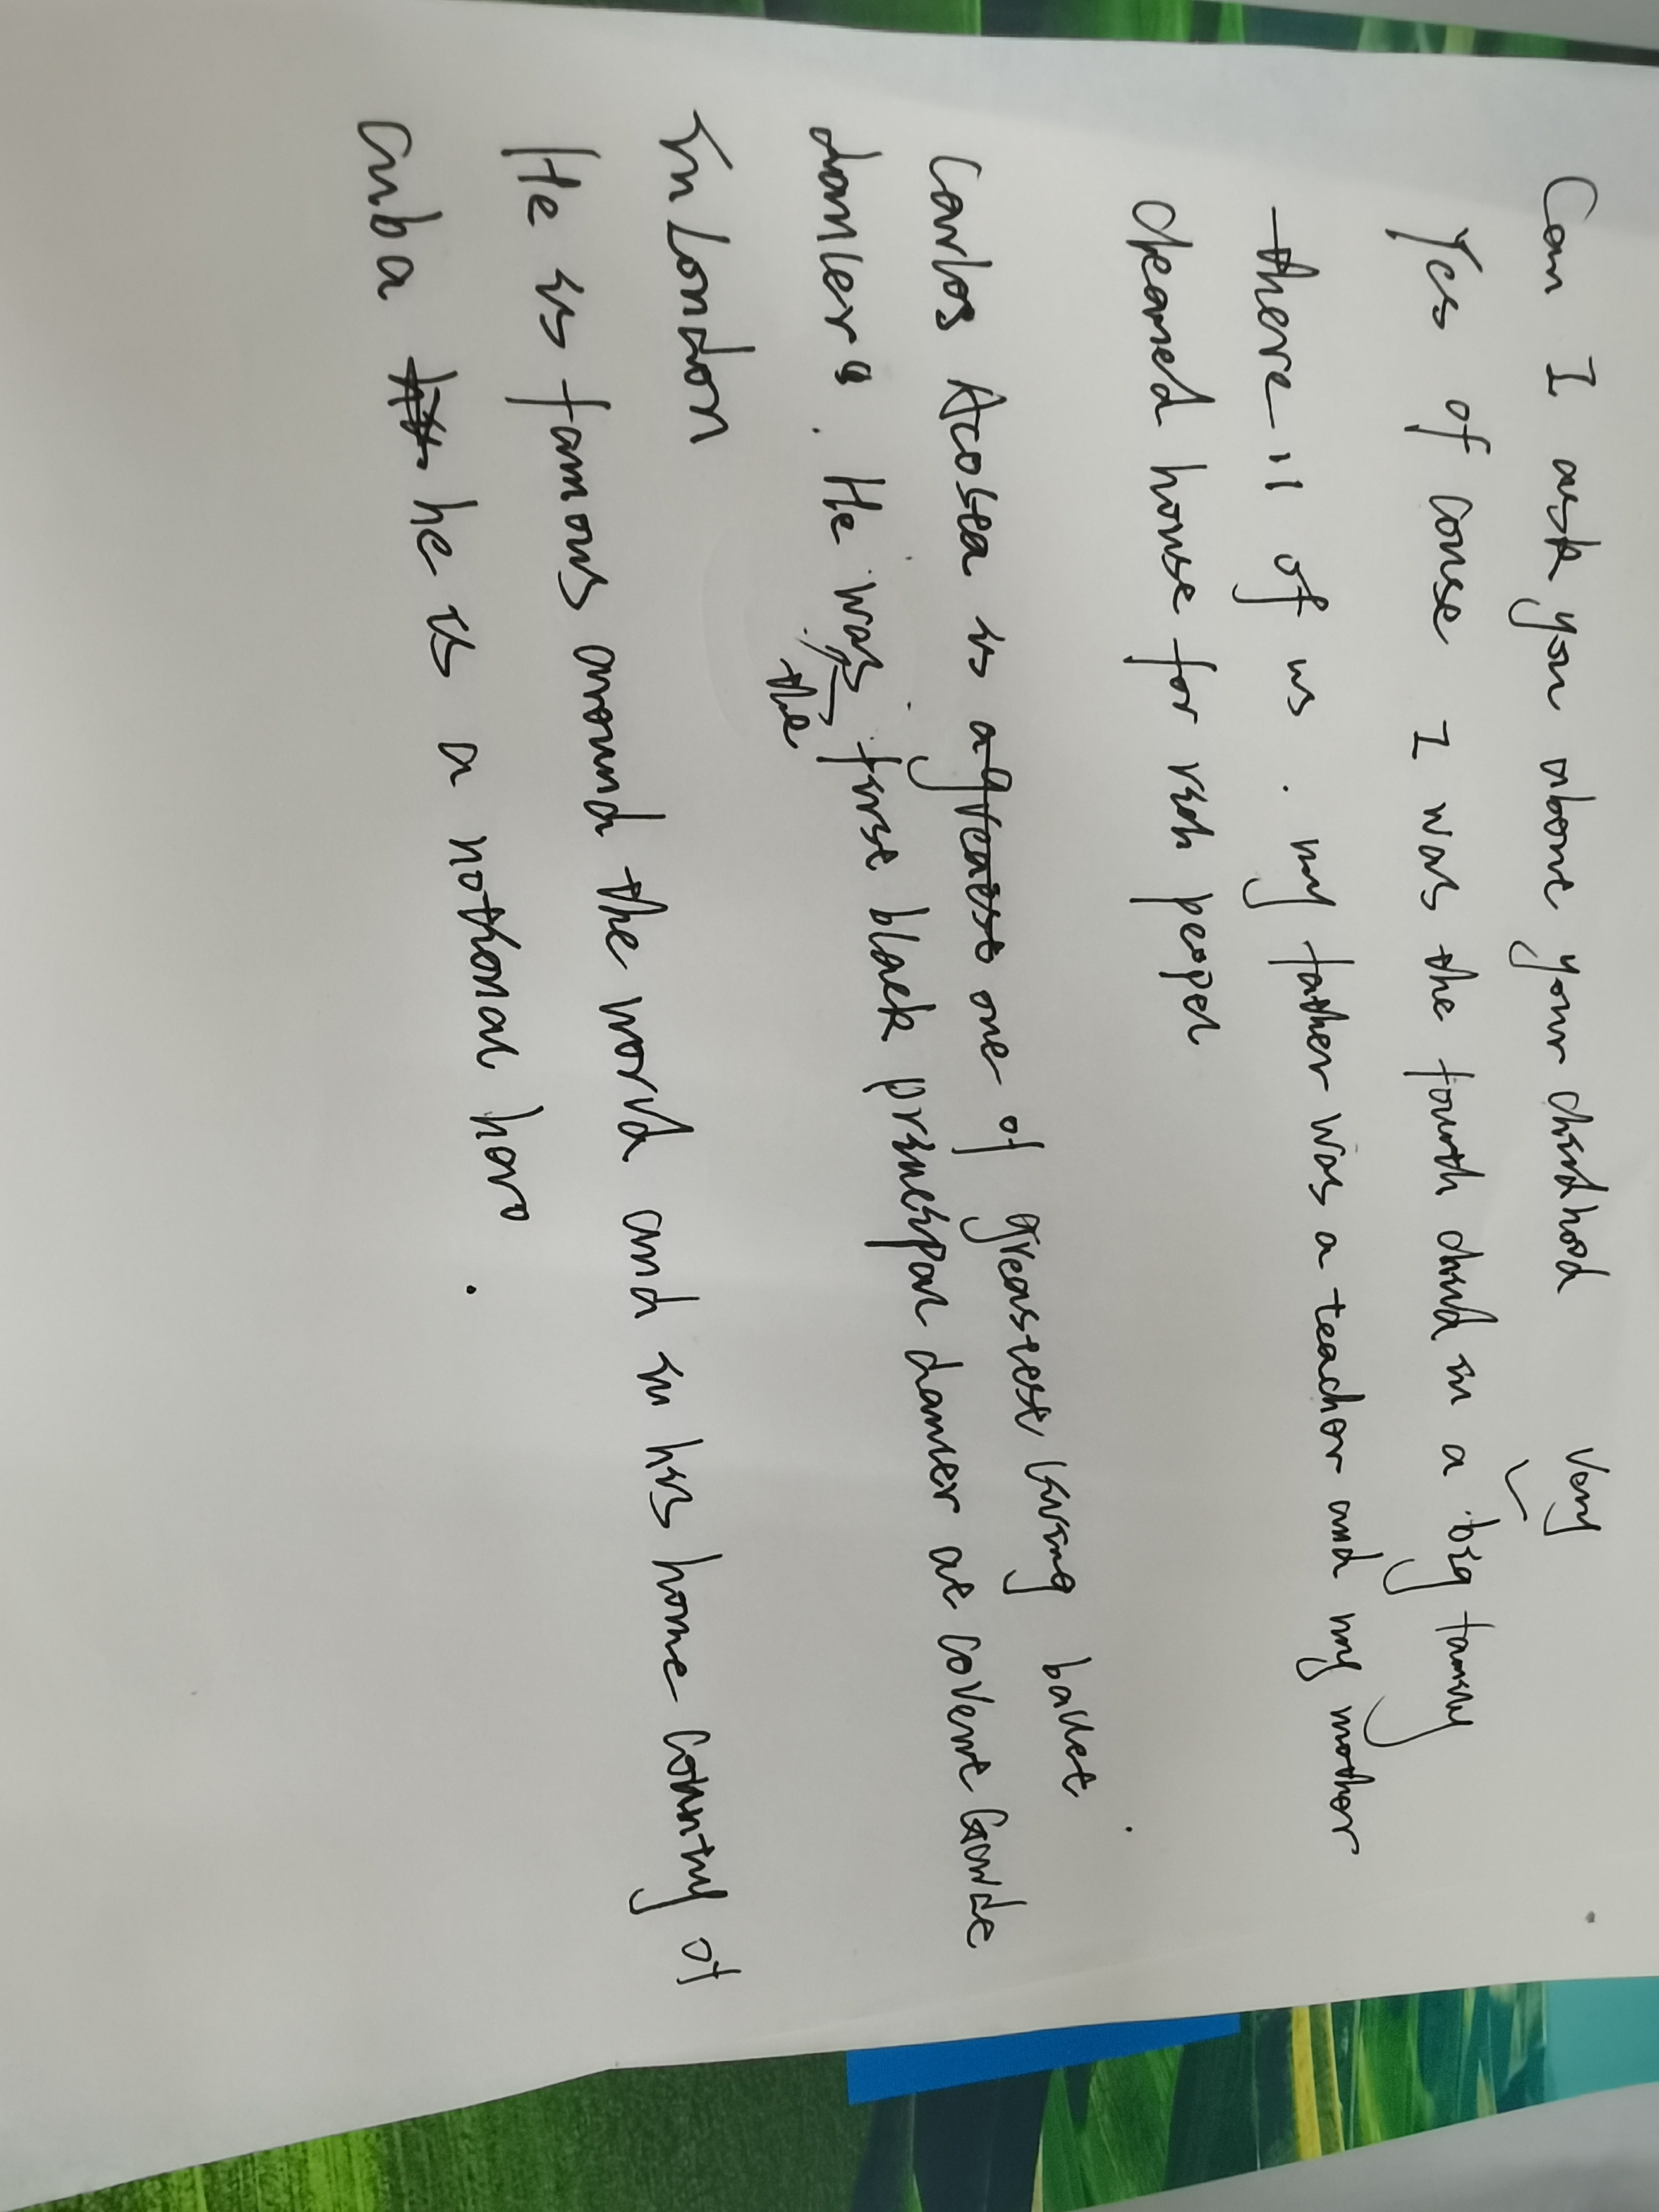 Can I ask you about your childhood
Yes of couse I was the fourth child in a very big family
there 11 of us . my father was a teacher and my mother
cleaned house for rich peopel
Carlos Acosta is a greatest one of greastest living ballet
dancers . He was the first black principal dancer at covent Garde
in London
He is famous around the world and in his home country of
cuba he is a national hero .